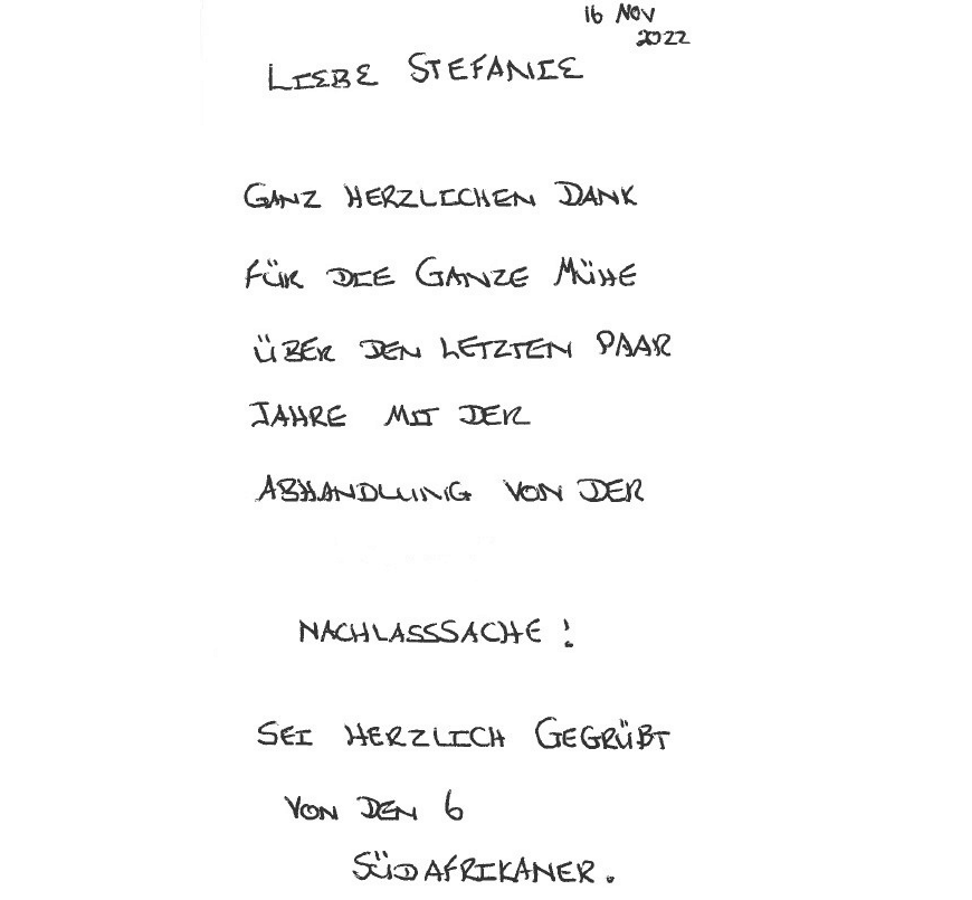 16 NOV
2022
LIEBE STEFANIE
GANZ HERZLICHEN DANK
FÜR DIE GANZE MÜHE
ÜBER DEN LETZTEN PAAR
JAHRE MIT DER
ABHANDLUNG VON DER
NACHLASSSACHE!
SEI HERZLICH GEGRÜßT
VON DEN 6
SÜDAFRIKANER.